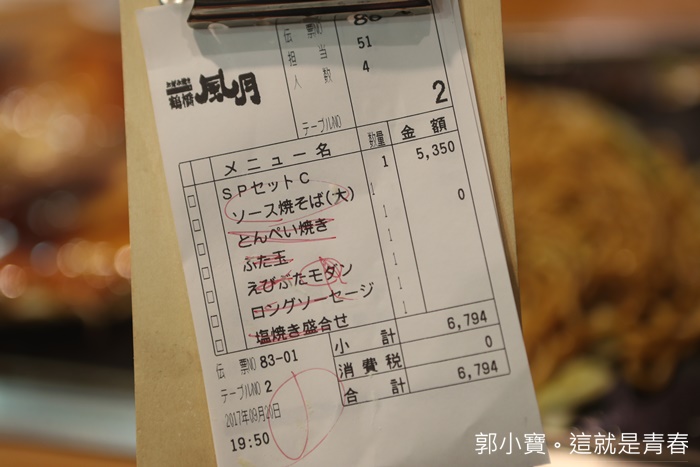 伝票NO 86
担当 51
人数 4
鶴橋 風月
テーブルNO 2
メニュー名 数量 金額
SPセットC 1 5,350
ソース焼そば(大) 1 0
とんぺい焼き 1
ぶた玉 1
えびぶたモダン 1
ロングソーセージ 1
塩焼き盛合せ 1
小計 6,794
消費税 0
合計 6,794
伝票NO 83-01
テーブルNO 2
2017年09月20日
19:50
郭小寶。這就是青春